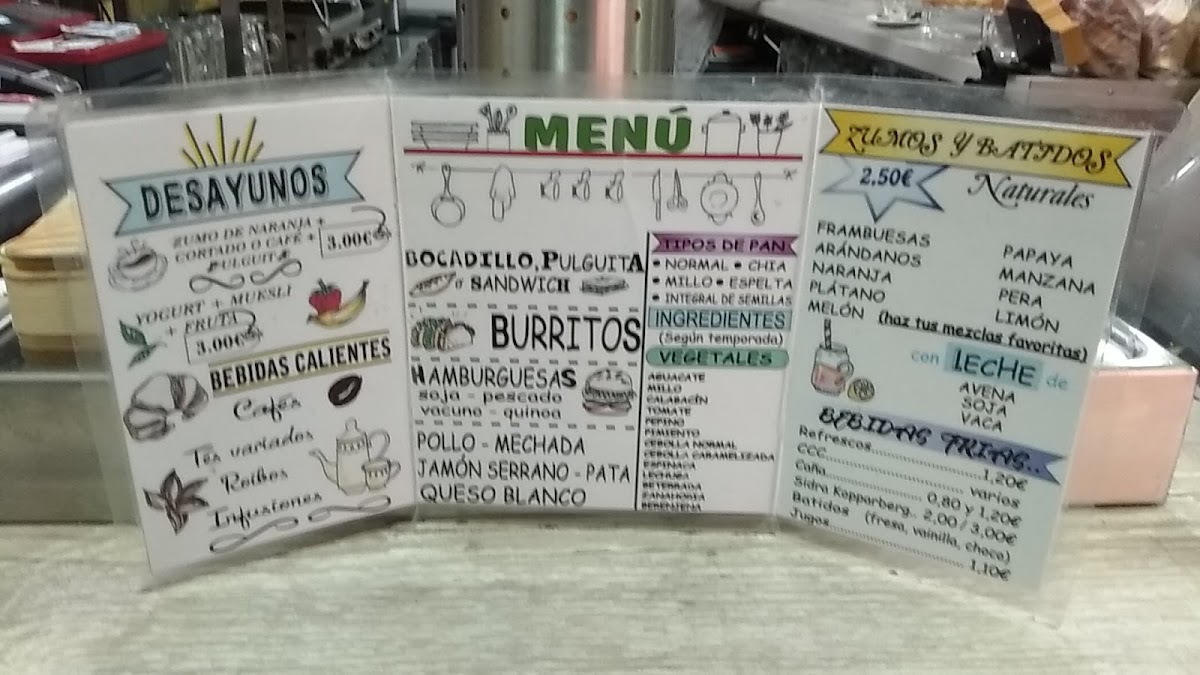 DESAYUNOS
ZUMO DE NARANJA +
CORTADO O CAFÉ +
PULGUITA
3.00€
YOGURT + MUESLI
+ FRUTA
3.00€
BEBIDAS CALIENTES
Cafés
Tes variados
Roibos
Infusiones
MENÚ
BOCADILLO, PULGUITA
o SANDWICH
BURRITOS
HAMBURGUESAS
soja - pescado
vacuno - quinoa
POLLO - MECHADA
JAMÓN SERRANO - PATA
QUESO BLANCO
TIPOS DE PAN
• NORMAL • CHIA
• MILLO • ESPELTA
• INTEGRAL DE SEMILLAS
INGREDIENTES
(Según temporada)
VEGETALES
AGUACATE
MILLO
CALABACÍN
TOMATE
PEPINO
PIMIENTO
CEBOLLA NORMAL
CEBOLLA CARAMELIZADA
ESPINACA
LECHUGA
BETERRADA
ZANAHORIA
BERENJENA
ZUMOS Y BATIDOS
2,50€
Naturales
FRAMBUESAS
ARÁNDANOS
NARANJA
PLÁTANO
MELÓN
PAPAYA
MANZANA
PERA
LIMÓN
(haz tus mezclas favoritas)
con LECHE de
AVENA
SOJA
VACA
BEBIDAS FRIAS..
Refrescos.................... 1,20€
CCC............................ varios
Caña................. 0,80 y 1,20€
Sidra Kopparberg.. 2,00 / 3,00€
Batidos (fresa, vainilla, choco)
Jugos............................ 1,10€